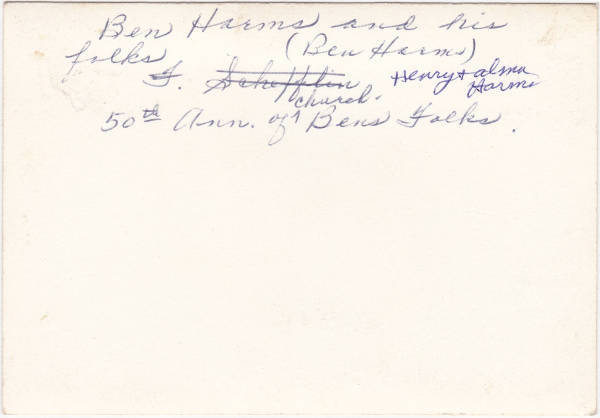 Ben Harms and his
folks (Ben Harms)
F. Schefflin Henry & Alma
church. Harms
50th Ann. of Bens Folks.